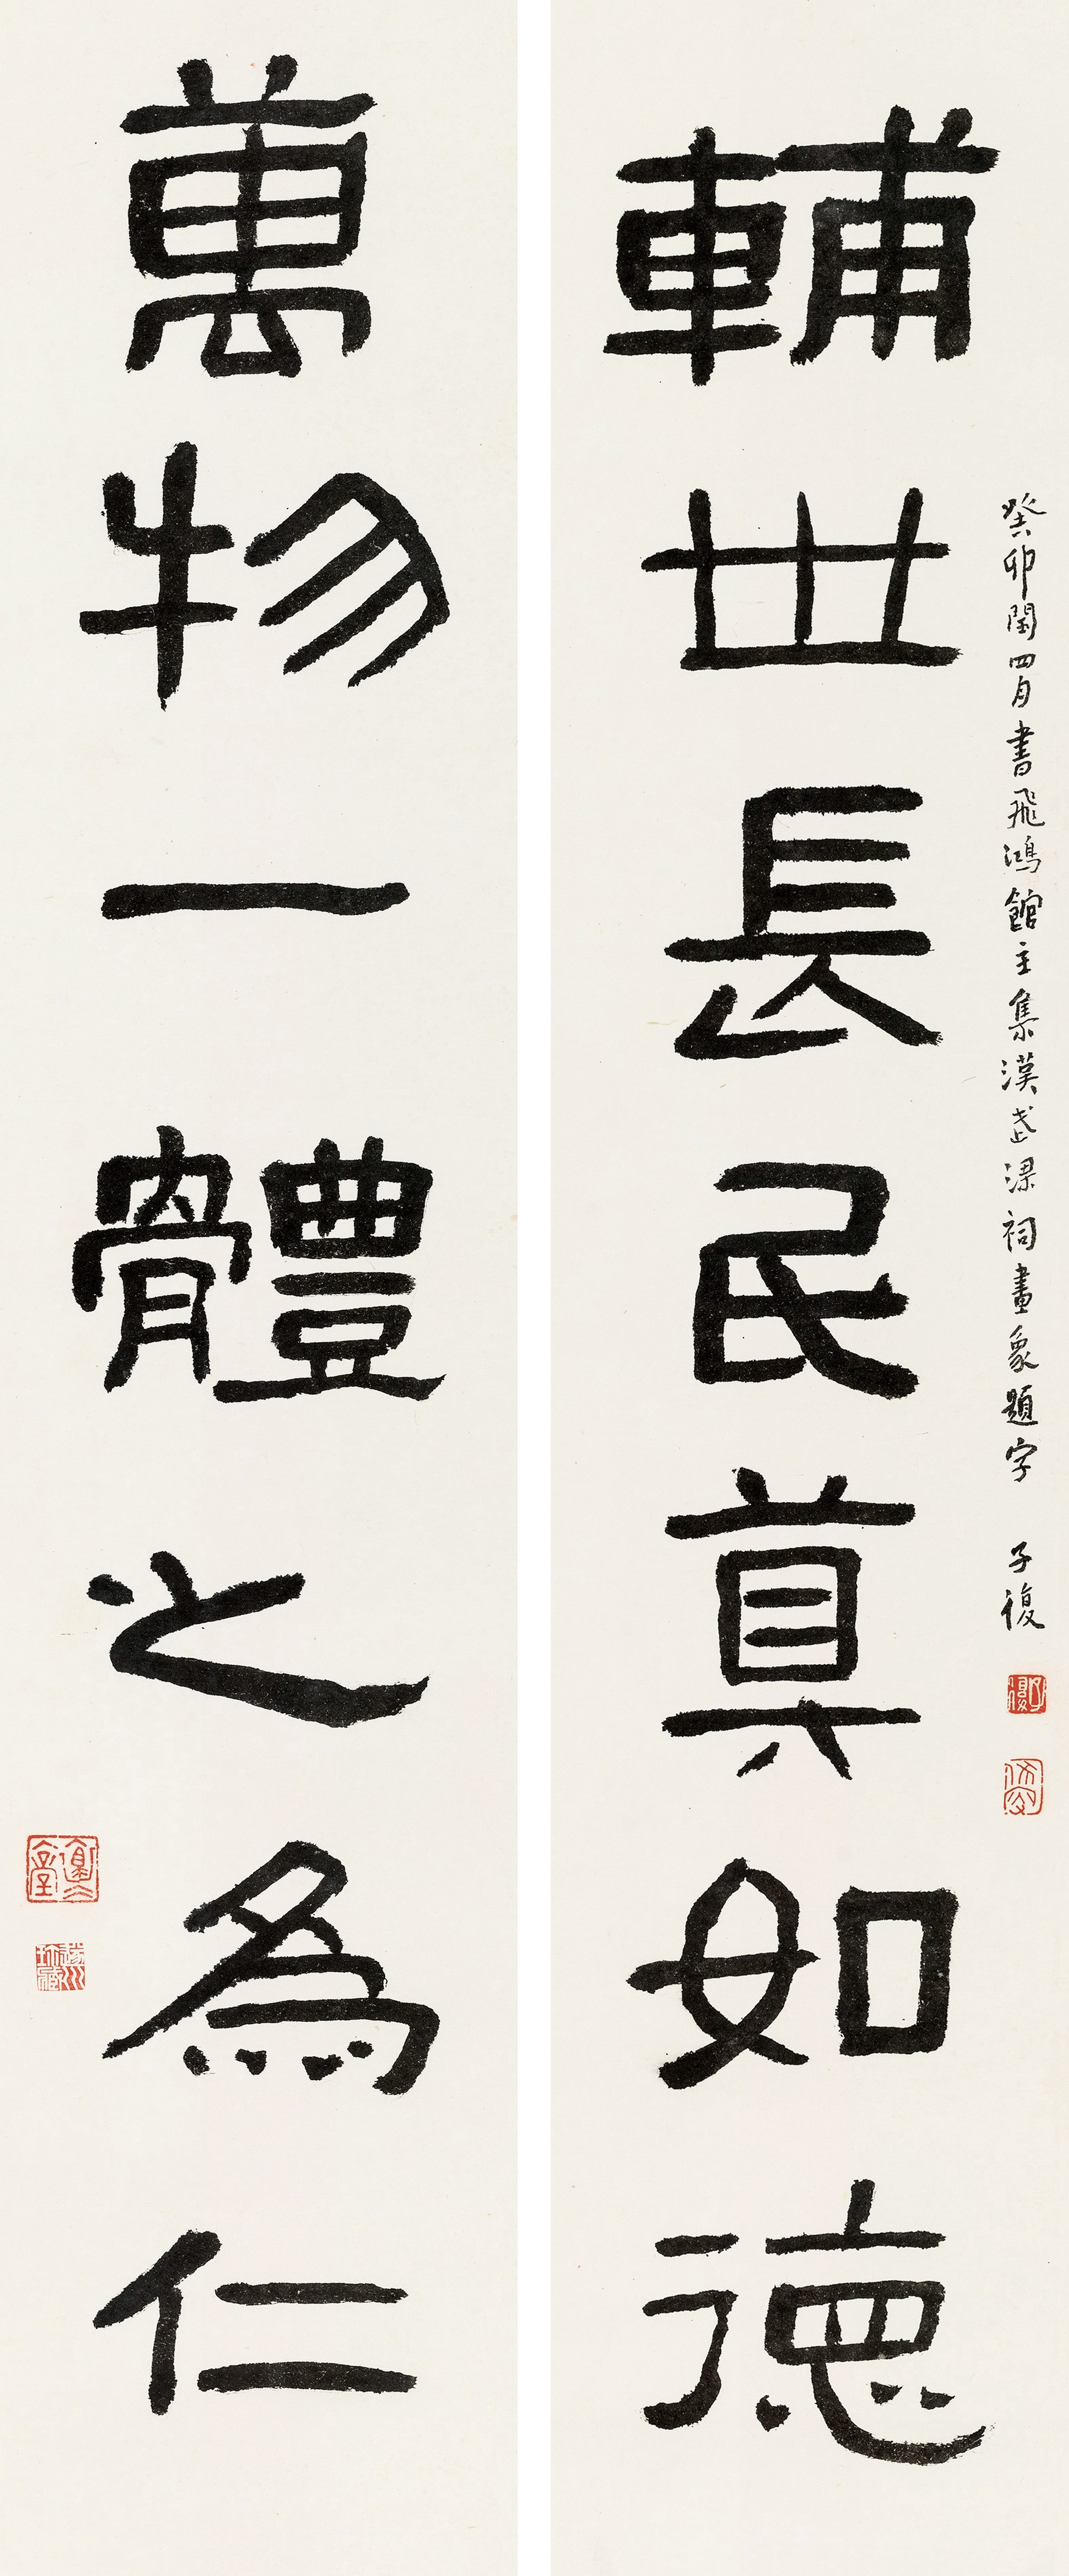 輔世長民莫如德
癸卯閏四月書飛鴻館主集漢武梁祠畫象題字 子復
子復
萬物一體之為仁